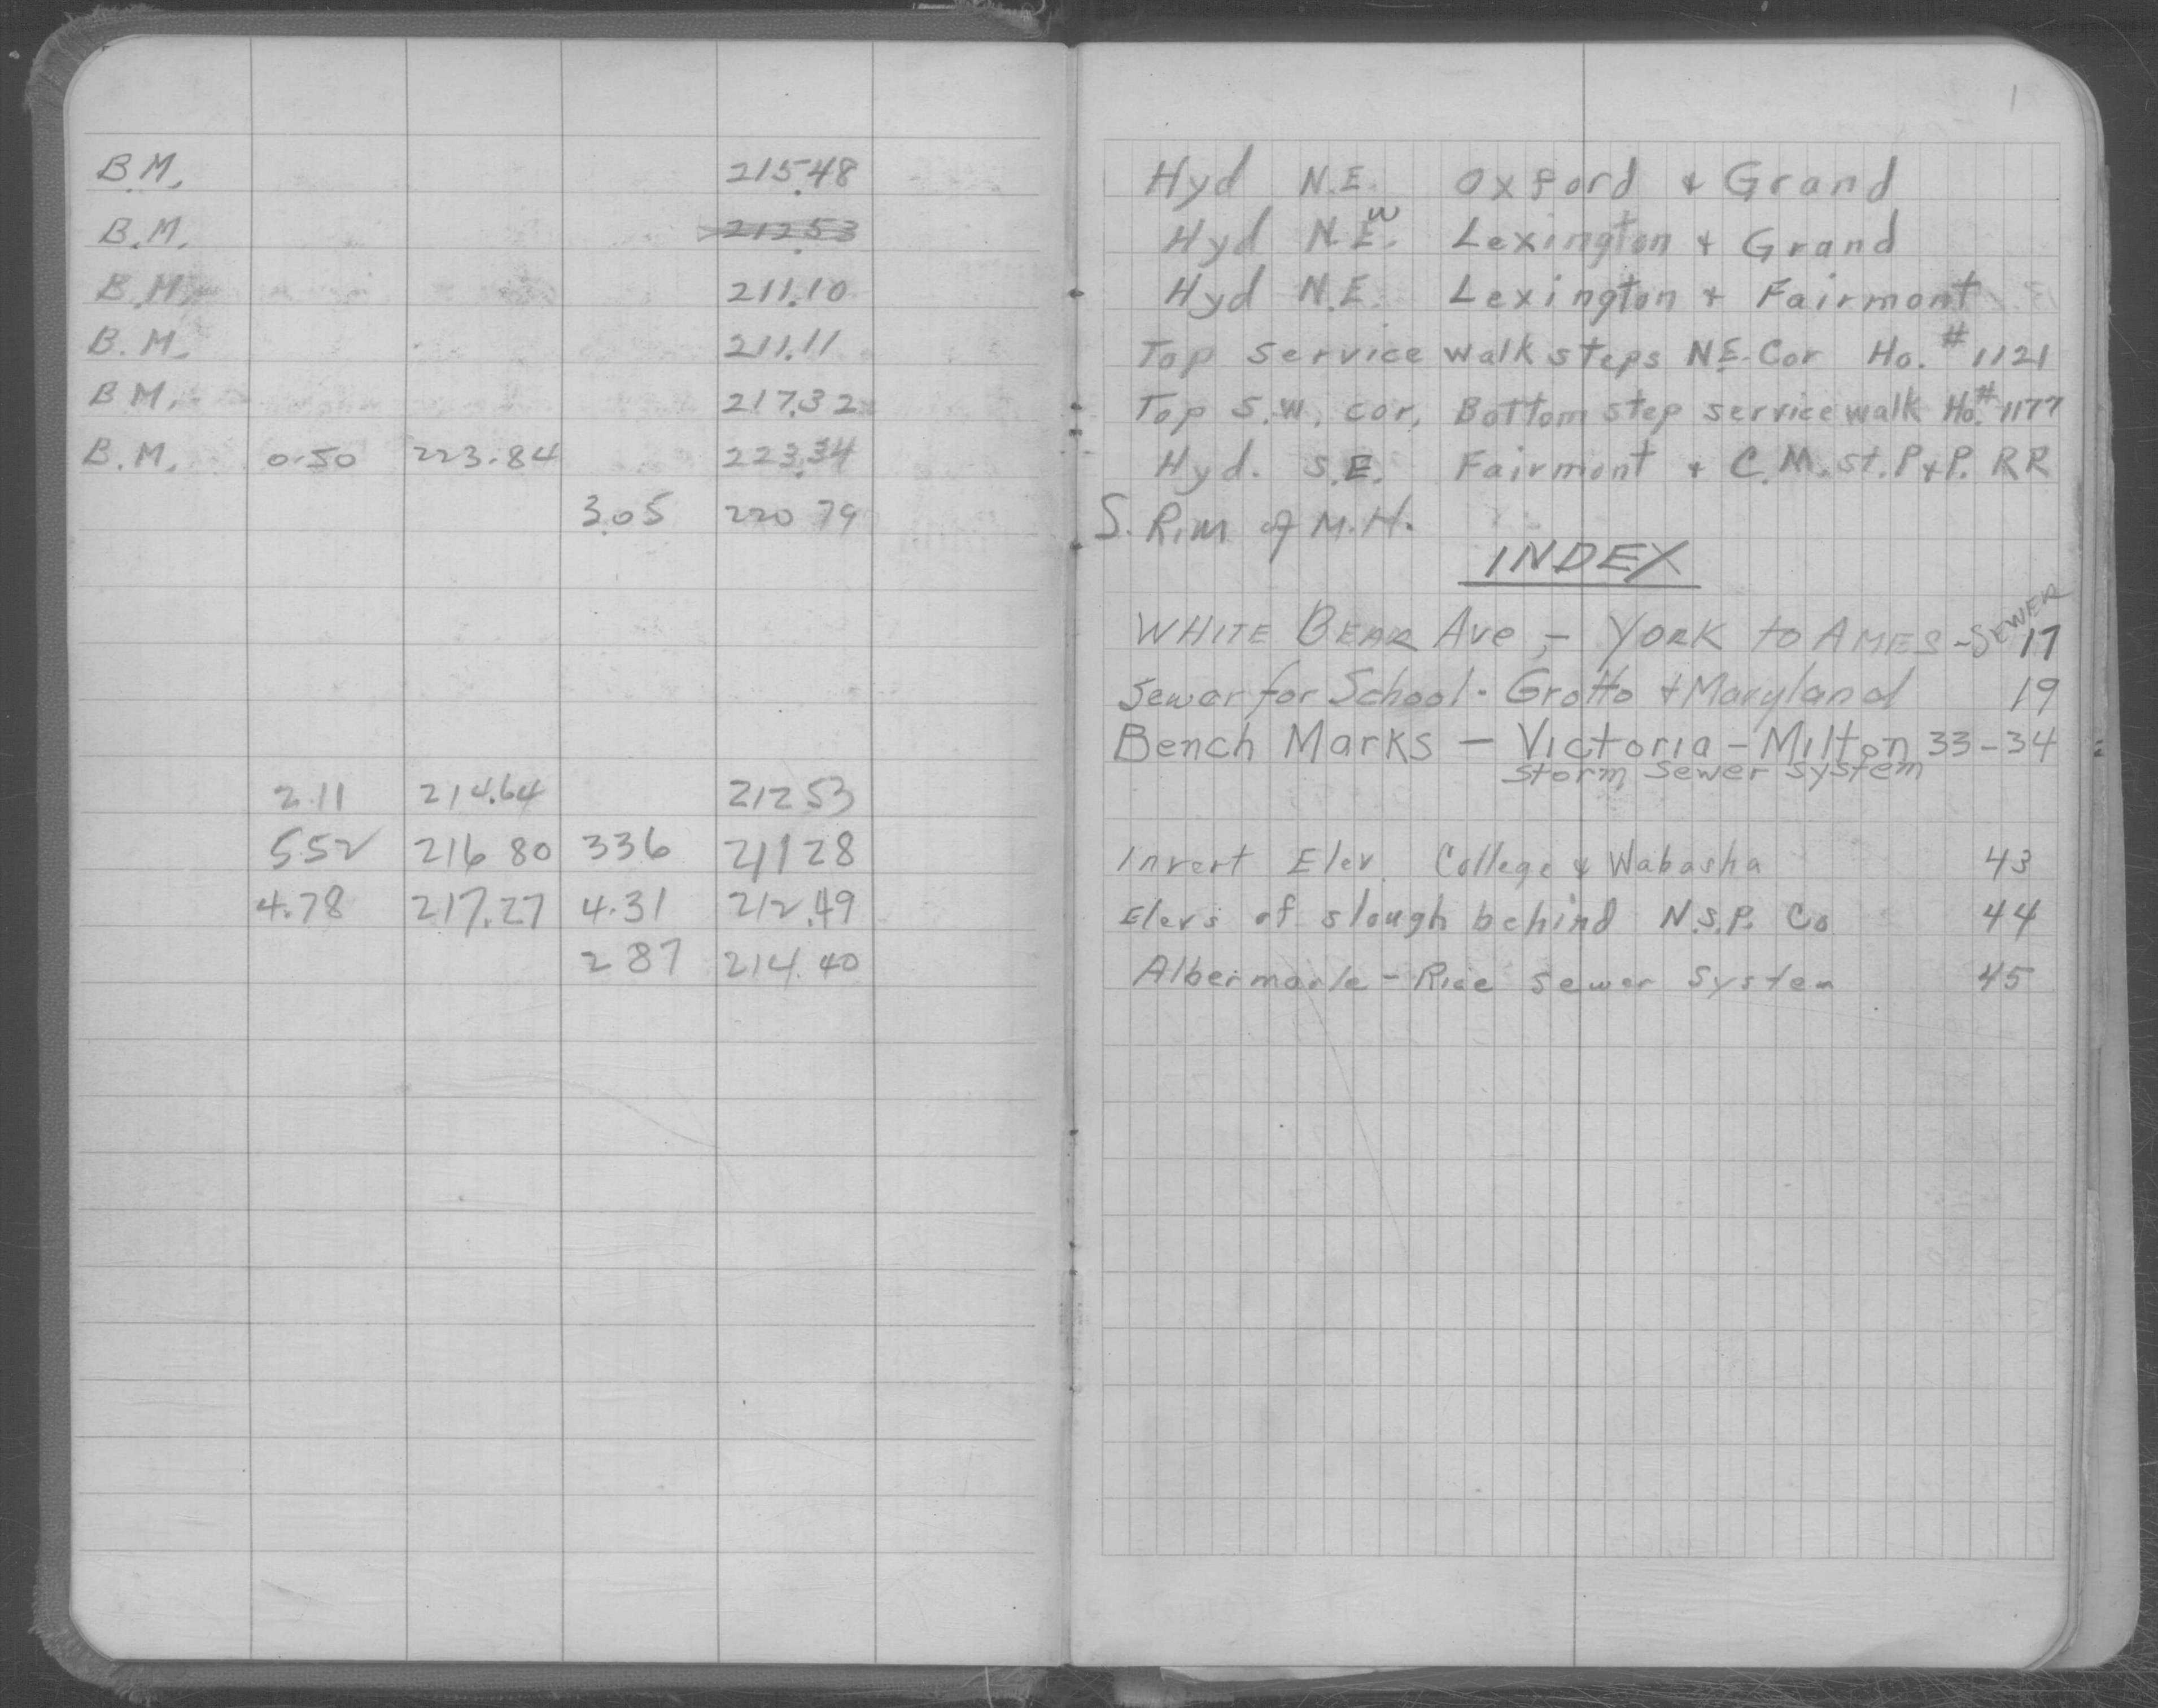 1
B.M. 215.48 Hyd N.E. Oxford & Grand
B.M. 212.53 Hyd N.E.W Lexington & Grand
B.M. 211.10 Hyd N.E. Lexington & Fairmont
B.M. 211.11 Top service walk steps NE. Cor Ho. #1121
B.M. 217.32 Top S.W. cor, Bottom step service walk Ho. #1177
B.M. 0.50 223.84 223.34 Hyd. S.E. Fairmont & C.M. St. P & P. RR
3.05 220 79 S. Rim of M.H.
INDEX
WHITE BEAR Ave,- YORK to AMES -SEWER 17
Sewer for School - Grotto & Maryland 19
Bench Marks — Victoria - Milton 33-34
Storm Sewer System
2.11 214.64 212 53
552 216 80 336 211 28 Invert Elev. College & Wabasha 43
4.78 217.27 4.31 212.49 Elevs of slough behind N.S.P. Co 44
2 87 214.40 Albermarle - Rice Sewer System 45